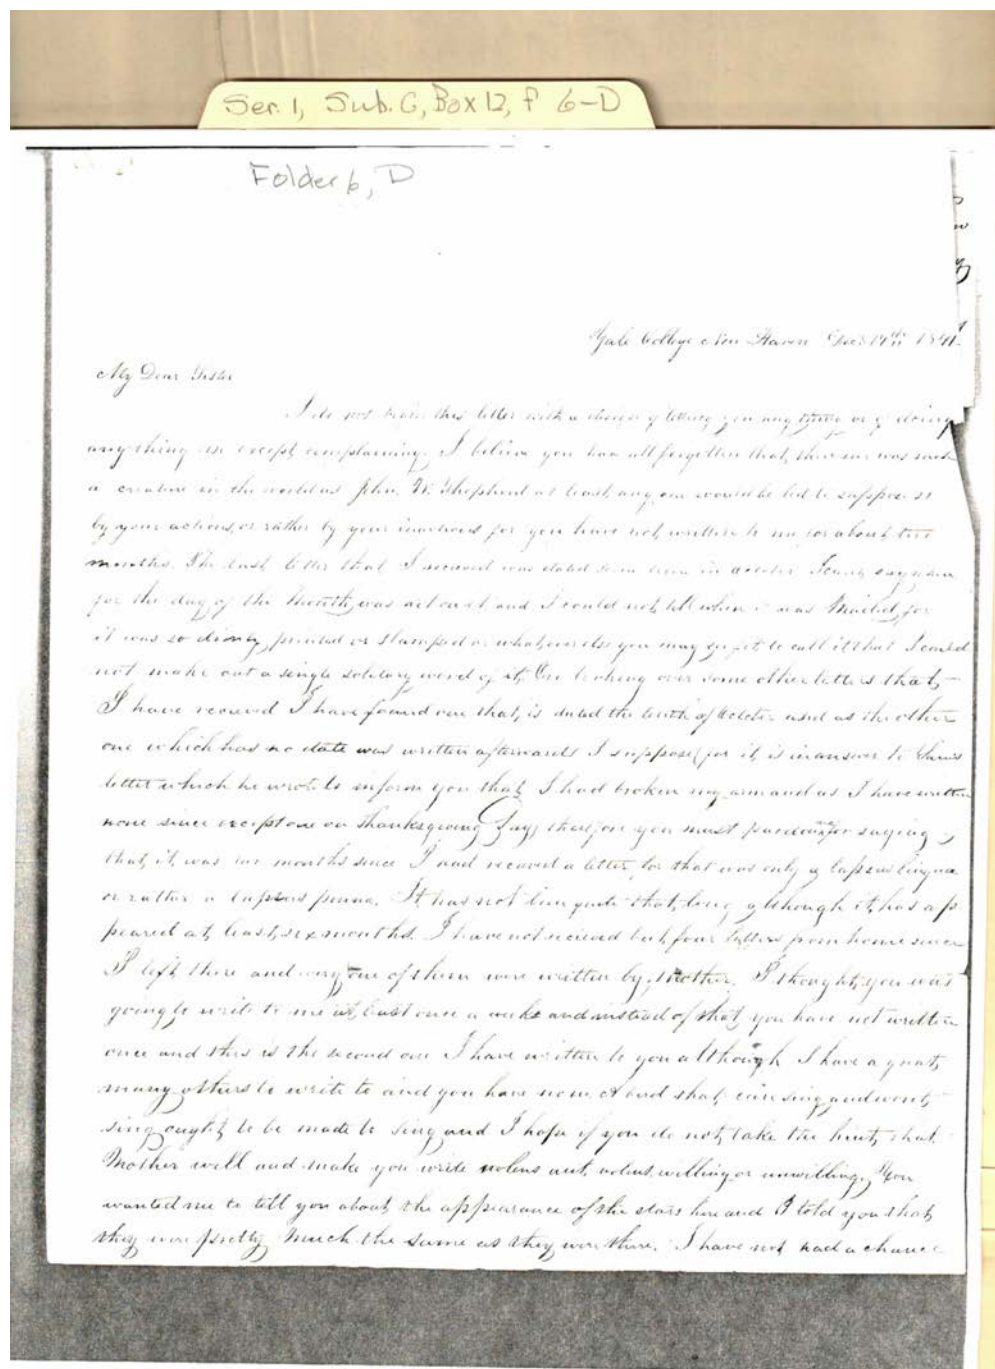 Ser. 1, Sub. G, Box 12, f 6-D
Folder 6, D
Yale College New Haven Dec 14th 1841
My Dear Sister
I do not begin this letter with a design of telling you any thing or of doing
any thing in except complaining. I believe you have all forgotten that there ever was such
a creature in the world as John. W. Shepherd at least any one would be led to suppose so
by your actions, or rather by your inactions for you have not written to me for about two
months. The last letter that I received was dated some time in october I cant say when
for the day of the Month was not on it and I could not tell when it was Mailed, for
it was so dimly printed or stamped or whatever else you may see fit to call it that I could
not make out a single solitary word of it. On looking over some other letters that
I have recieved I have found one that is dated the tenth of October and as the other
one which has no date was written afterwards I suppose for it is in answer to Sam's
letter which he wrote to inform you that I had broken my arm and as I have written
none since except one on thanksgiving day, therefore you must pardon me for saying
that it was two months since I had received a letter, for that was only a lapsus linguae
or rather a lapsus penna. It has not been quite that long although it has ap
peared at least six months. I have not recieved but four letters from home since
I left there and every one of them were written by Mother. I thought you was
going to write to me at least once a week and instead of that you have not written
once and this is the second one I have written to you although I have a great
many others to write to and you have none. A bird that can sing and wont
sing ought to be made to sing and I hope if you do not take the hint that
Mother will and make you write nolens aut volens willing or unwilling. You
wanted me to tell you about the appearance of the stars here and I told you that
they were pretty much the same as they were there. I have not had a chance